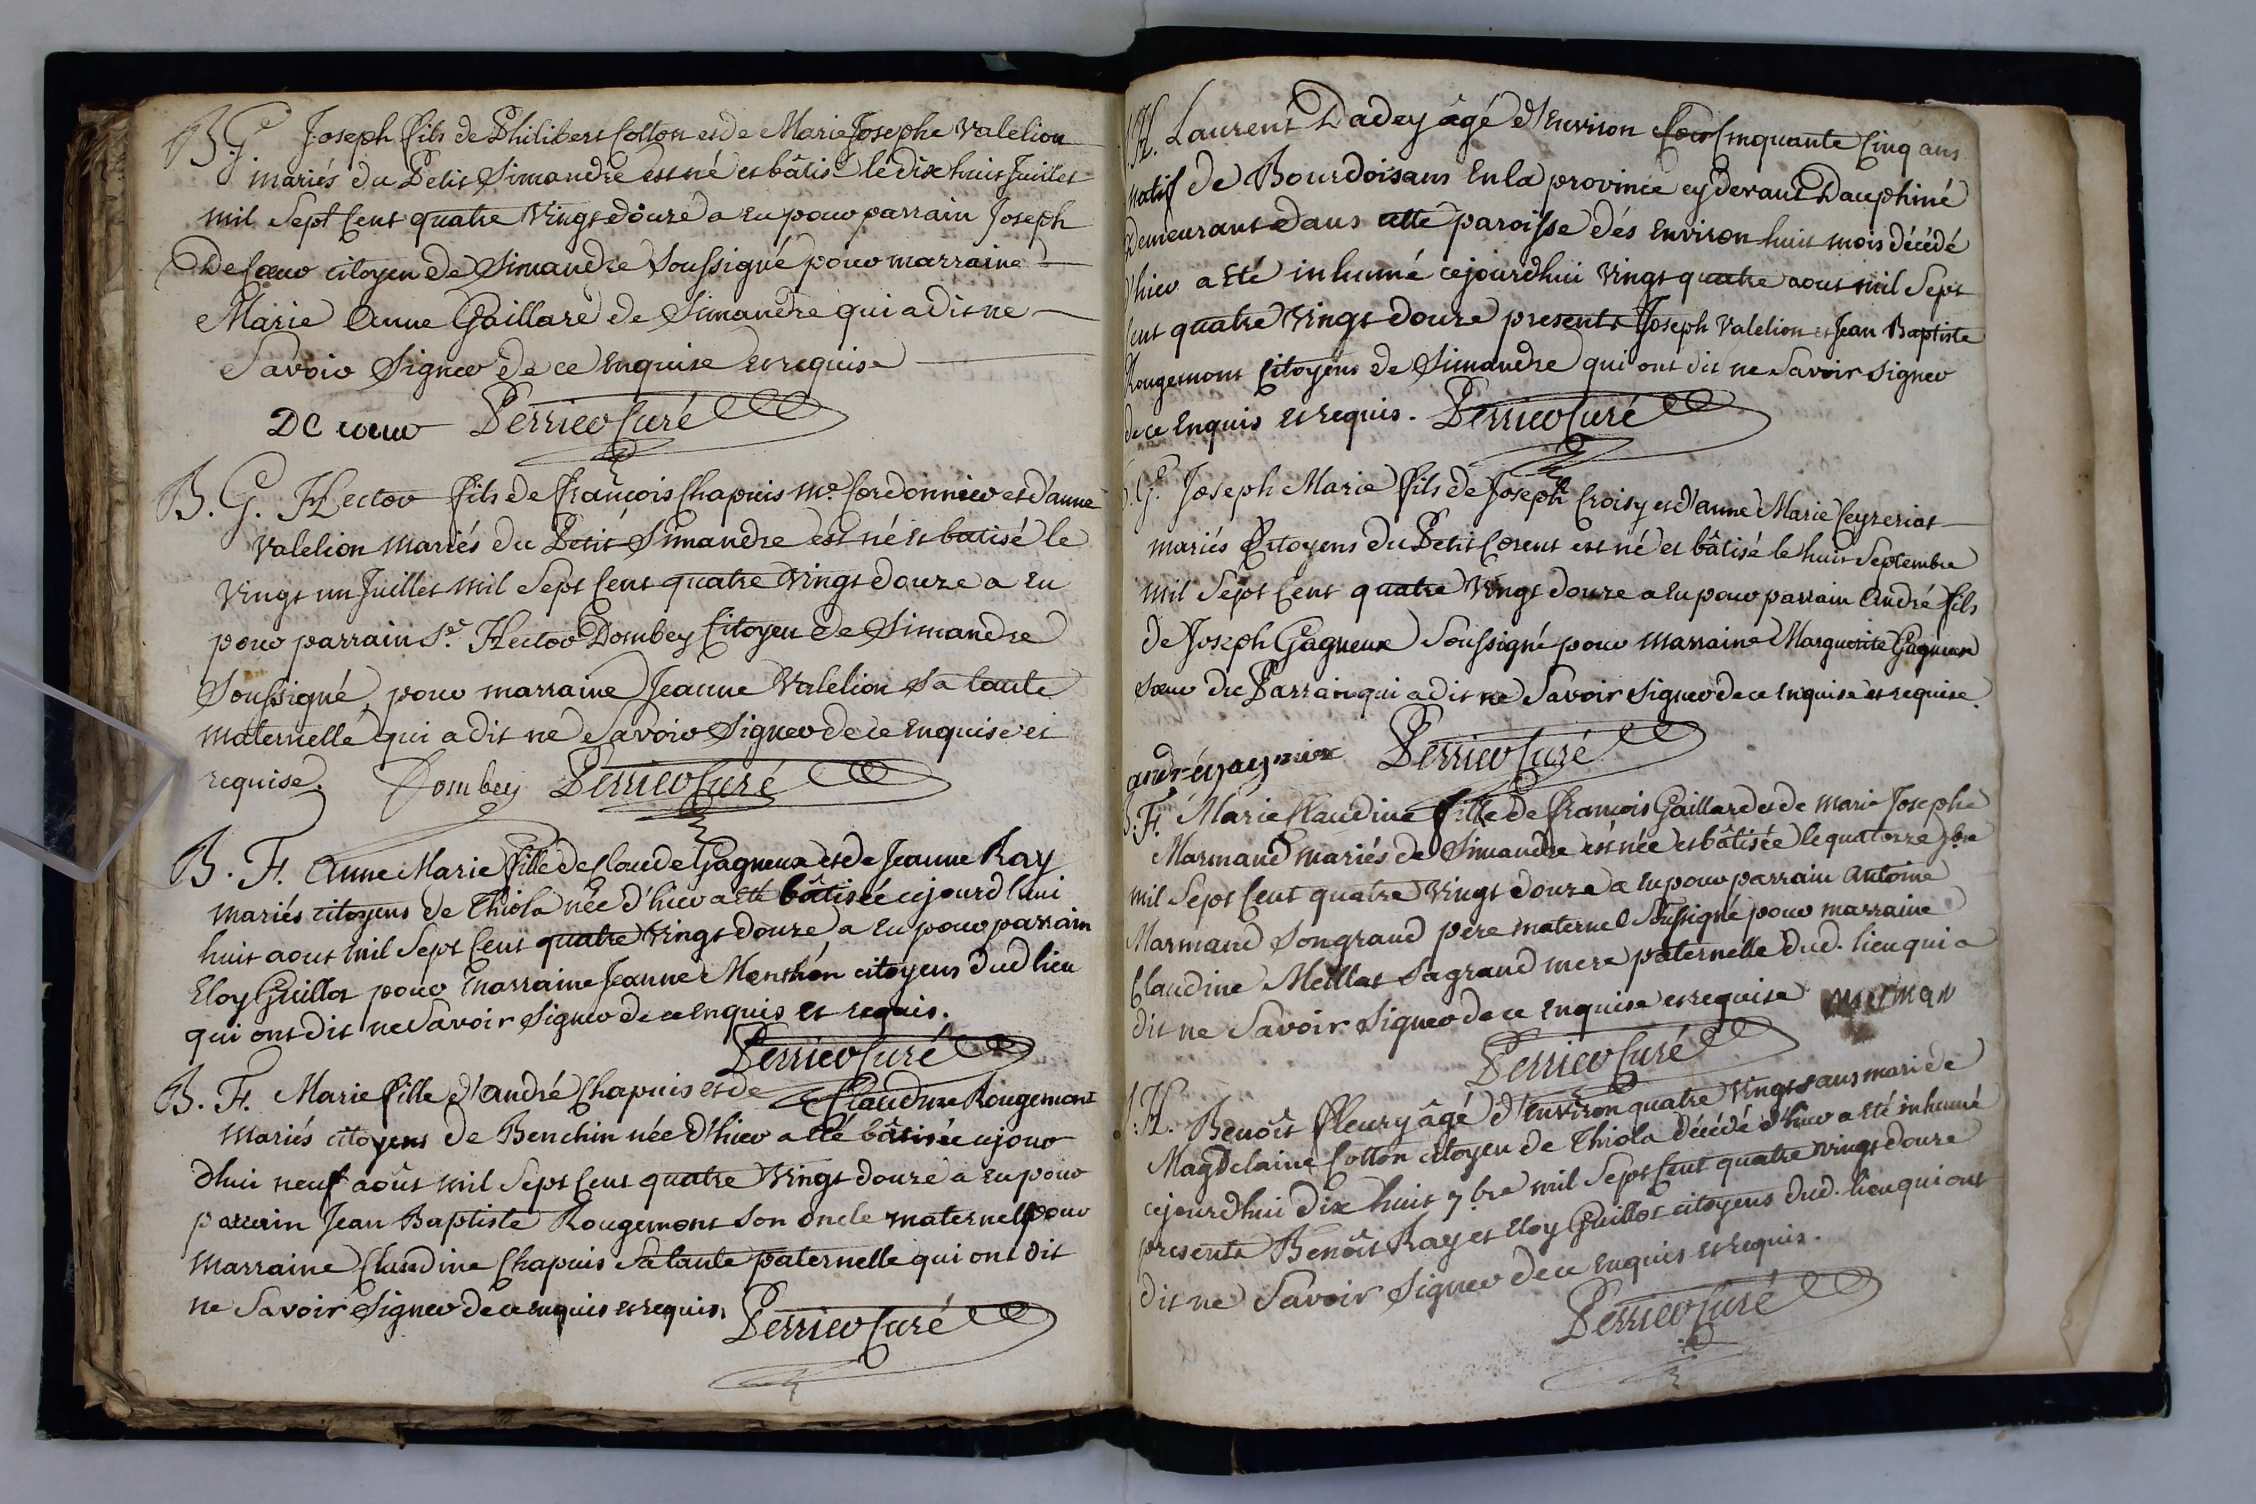 B. G. Joseph fils de Philibert Cotton et de Marie Josephe Valelion
mariés du Petit Simandre est né et bâtisé le dix huit Juillet
mil Sept Cent quatre Vingt douze a eu pour parrain Joseph
Decoeur citoyen de Simandre Soussigné pour marraine
Marie Anne Gaillard de Simandre qui a dit ne
Savoir Signer de ce enquise et requise
DC coeur Perrier Curé
B. G. Hector fils de françois Chapuis Me. Cordonnier et d'anne
Valelion mariés du Petit Simandre est né et batisé le
Vingt un Juillet mil Sept Cent quatre Vingt douze a eu
pour parrain Sr. Hector Dombey Citoyen de Simandre
Soussigné, pour marraine Jeanne Valelion Sa tante
maternelle qui a dit ne Savoir Signer de ce enquise et
requise. Dombey Perrier Curé
B. F. Anne Marie fille de Claude Gagneux et de Jeanne Ray
mariés citoyens de Thiola née d'hier a été bâtisée cejourd'hui
huit aout mil Sept Cent quatre Vingt douze a eu pour parrain
Eloy Guillot pour marraine Jeanne Monthon citoyens dud lieu
qui ont dit ne Savoir Signer de ce enquis et requis.
Perrier Curé
B. F. Marie fille d'André Chapuis et de Claudine Rougemont
mariés citoyens de Benchin née d'hier a été bâtisée cejour
dhui neuf août mil Sept Cent quatre Vingt douze a eu pour
parrain Jean Baptiste Rougemont Son oncle maternel pour
marraine Claudine Chapuis Sa tante paternelle qui ont dit
ne Savoir Signer de ce enquis et requis. Perrier Curé
H. Laurent Dadey âgé d'Environ Cinquante Cinq ans
natif de Bourdoisans En la province cy devant Dauphiné
Demeurant dans cette paroisse dés Environ huit mois décédé
hier a Eté inhumé cejourdhui Vingt quatre aout mil Sept
Cent quatre Vingt douze presents Joseph Valelion et Jean Baptiste
Rougemont Citoyens de Simandre qui ont dit ne Savoir Signer
de ce Enquis et requis. Perrier Curé
G. Joseph Marie fils de Joseph Croisy et d'anne Marie Ceyzeriat
mariés Citoyens du Petit Corent est né et bâtisé le huit Septembre
mil Sept Cent quatre Vingt douze a Eu pour parrain André fils
de Joseph Gagneux Soussigné pour marraine Marguerite Gagneux
soeur du Parrain qui a dit ne Savoir Signer de ce enquise et requise.
andré gagneux Perrier Curé
B. F. Marie Claudine fille de françois Gaillard et de marie Josephe
Marmand mariés de Simandre est née et bâtisée le quatorze 7bre
mil Sept Cent quatre Vingt douze a Eu pour parrain Antoine
Marmand Son grand père maternel Soussigné pour marraine
Claudine Meillat Sa grand mere paternelle dud. lieu qui a
dit ne Savoir Signer de ce enquise et requise marman
Perrier Curé
H. Benoît fleury âgé d'environ quatre Vingts ans mari de
Magdelaine Cotton citoyen de Thiola décédé d'hier a été inhumé
cejourdhui dix huit 7.bre mil Sept Cent quatre vingt douze
presents Benoît Ray et Eloy Guillot citoyens dud. lieu qui ont
dit ne Savoir Signer de ce enquis et requis.
Perrier Curé